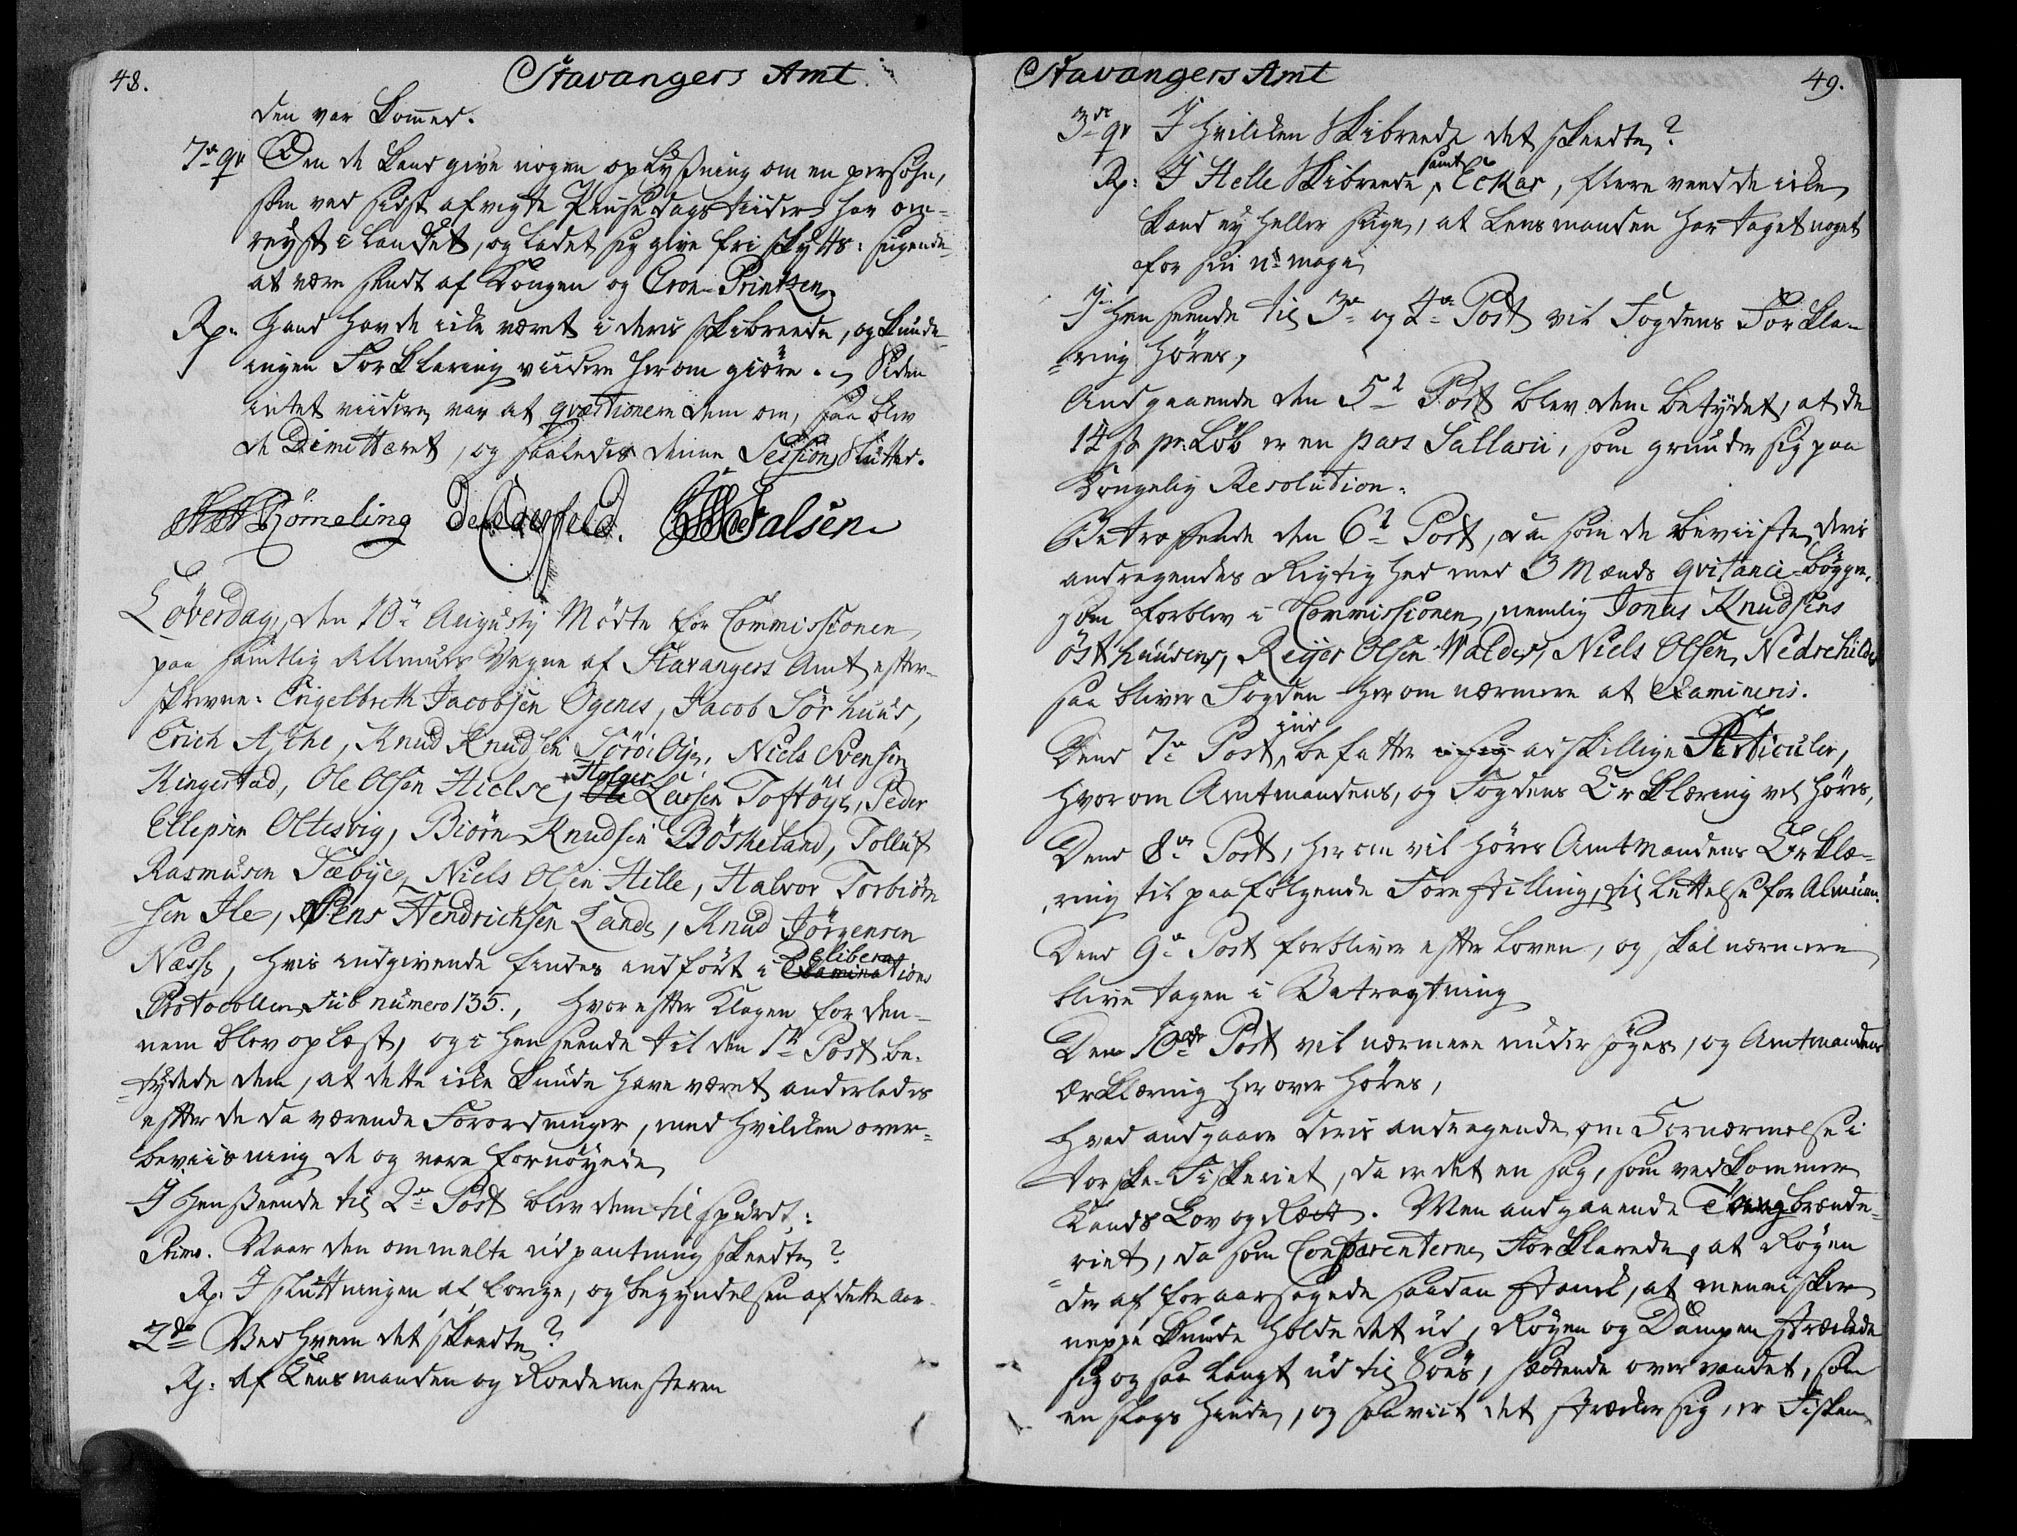 48.
Stavangers Amt
den var kommed.
7de qv Om de kand give nogen oplysning om en persohn,
som ved sidst afvigte Pindsedags tiider har om-
reyst i landet, og ladet sig give fri skyts: sigende
at være sendt af Kongen og Cron-Printzen
Rp. Hand havde icke været i deris skibreede, og kunde
ingen Forklaring viidere herom giøre. Siden
intet viidere var at qvæstionere dem om, saa blev
de Dimitteret, og saaledes denne Session Sluttet.
Rømeling de Cederfeld. Falsen
Löverdag, den 10de Augustij Mödte for Commissionen
paa samtlig Allmues Vegne af Stavangers Amt efter-
skrevne: Engelbreth Jacobsen Ogenes, Jacob Sörhuus,
Erich Aske, Knud Knudsen Niels Svensen
Ringestad, Ole Olsen Hielse, Holger Larsen Toftöye, Peder
Ellefsen Oltesvig, Biörn Knudsen Böskeland, Tolluf
Rasmusen Sæbye, Niels Olsen Hille, Halvor Torbiörn
sen Ile, Jens Hendrichsen Lande, Knud Jörgensen
Næss, hvis indgivende findes indfört i Deliberations
Protocollen Sub numero 135., hvorefter Klagen for den-
nem blev oplæst, og i henseende til den 1te Post be-
tydede dem, at dette icke kunde have været anderledis
efter de da værende Forordninger, med hvilcken over-
beviisning de og vare fornöyede
I henseende til 2de Post blev dem tilspurdt:
Primo. Naar den ommelte udpantning skeedte?
Rp. I slutningen af forige, og begyndelsen af dette Aar.
2do Ved hvem det skeedte?
Rp: Af Lensmanden og Roedemesteren
Stavangers Amt
49.
3de qv I hvilcken Skibreede det skeedte?
Rp: I Helle Skibreede, samt Eckar, flere veed de icke
kand ey heller sige, at Lensmanden har taget noget
for sin umage
I henseende til 3de og 4de Post vil Fogdens Forkla-
ring höres,
Andgaaende den 5te Post blev dem betydet, at de
14 s pr. Löb er en pars Sallarii, som grunder sig paa
Kongelig Resolution.
Betreffende den 6te Post, da som de beviiste deris
andragendes Rigtighed med 3 Mænds qvitance-böger,
som forblev i Commissionen, nemlig Jonas Knudsens
Östhuusens, Reijer Olsen Walder, Niels Olsen Nedrehilde
saa bliver Fogden herom nærmere at Examineris.
Dend 7de Post, indbefatter adskillige Particuler,
hvorom Amtmandens, og Fogdens Erklæring vil höres,
Dend 8de Post, herom vil höres Amtmandens Erklæ-
ring til paafölgende Forestilling til Lettelse for Almuen.
Dend 9de Post forbliver efter Loven, og skal nærmere
blive tagen i Betragtning
Den 10de Post vil nærmere undersöges, og Amtmandens
Erklæring herover höres,
Hvad andgaaer deris andragende om Fornærmelse i
torske-Fiskeriet, da er det en sag, som vedkommer
Lands Lov og Ræt. Men andgaaende Tangbrænde-
riet, da som Comparenterne Forklarede, at Røgen
deraf foraarsagede saadan stanck, at mennisker
neppe kunde holde det ud, Røgen og Dampen strækede
sig og saa langt ud til Söes, sættende over vandet, som
en slags hinde, og saa viit det strækker sig, er Fisken